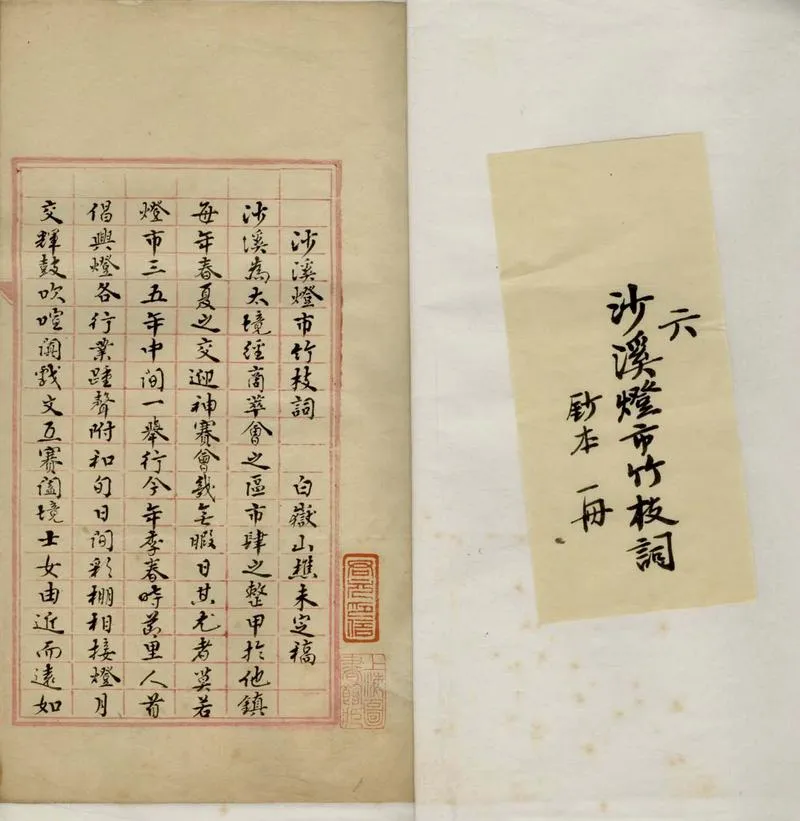 六
沙溪燈市竹枝詞
鈔本 一冊
沙溪燈市竹枝詞 白嶽山樵未定稿
沙溪為太境經商萃會之區市肆之整甲於他鎮
每年春夏之交迎神賽會幾無暇日其尤者莫若
燈市三五年中間一舉行今年季春時里人首
倡興燈各行業踵聲附和旬日間彩棚相接燈月
交輝鼓吹喧闐戲文互賽闔境士女由近而遠如
上海圖書館藏